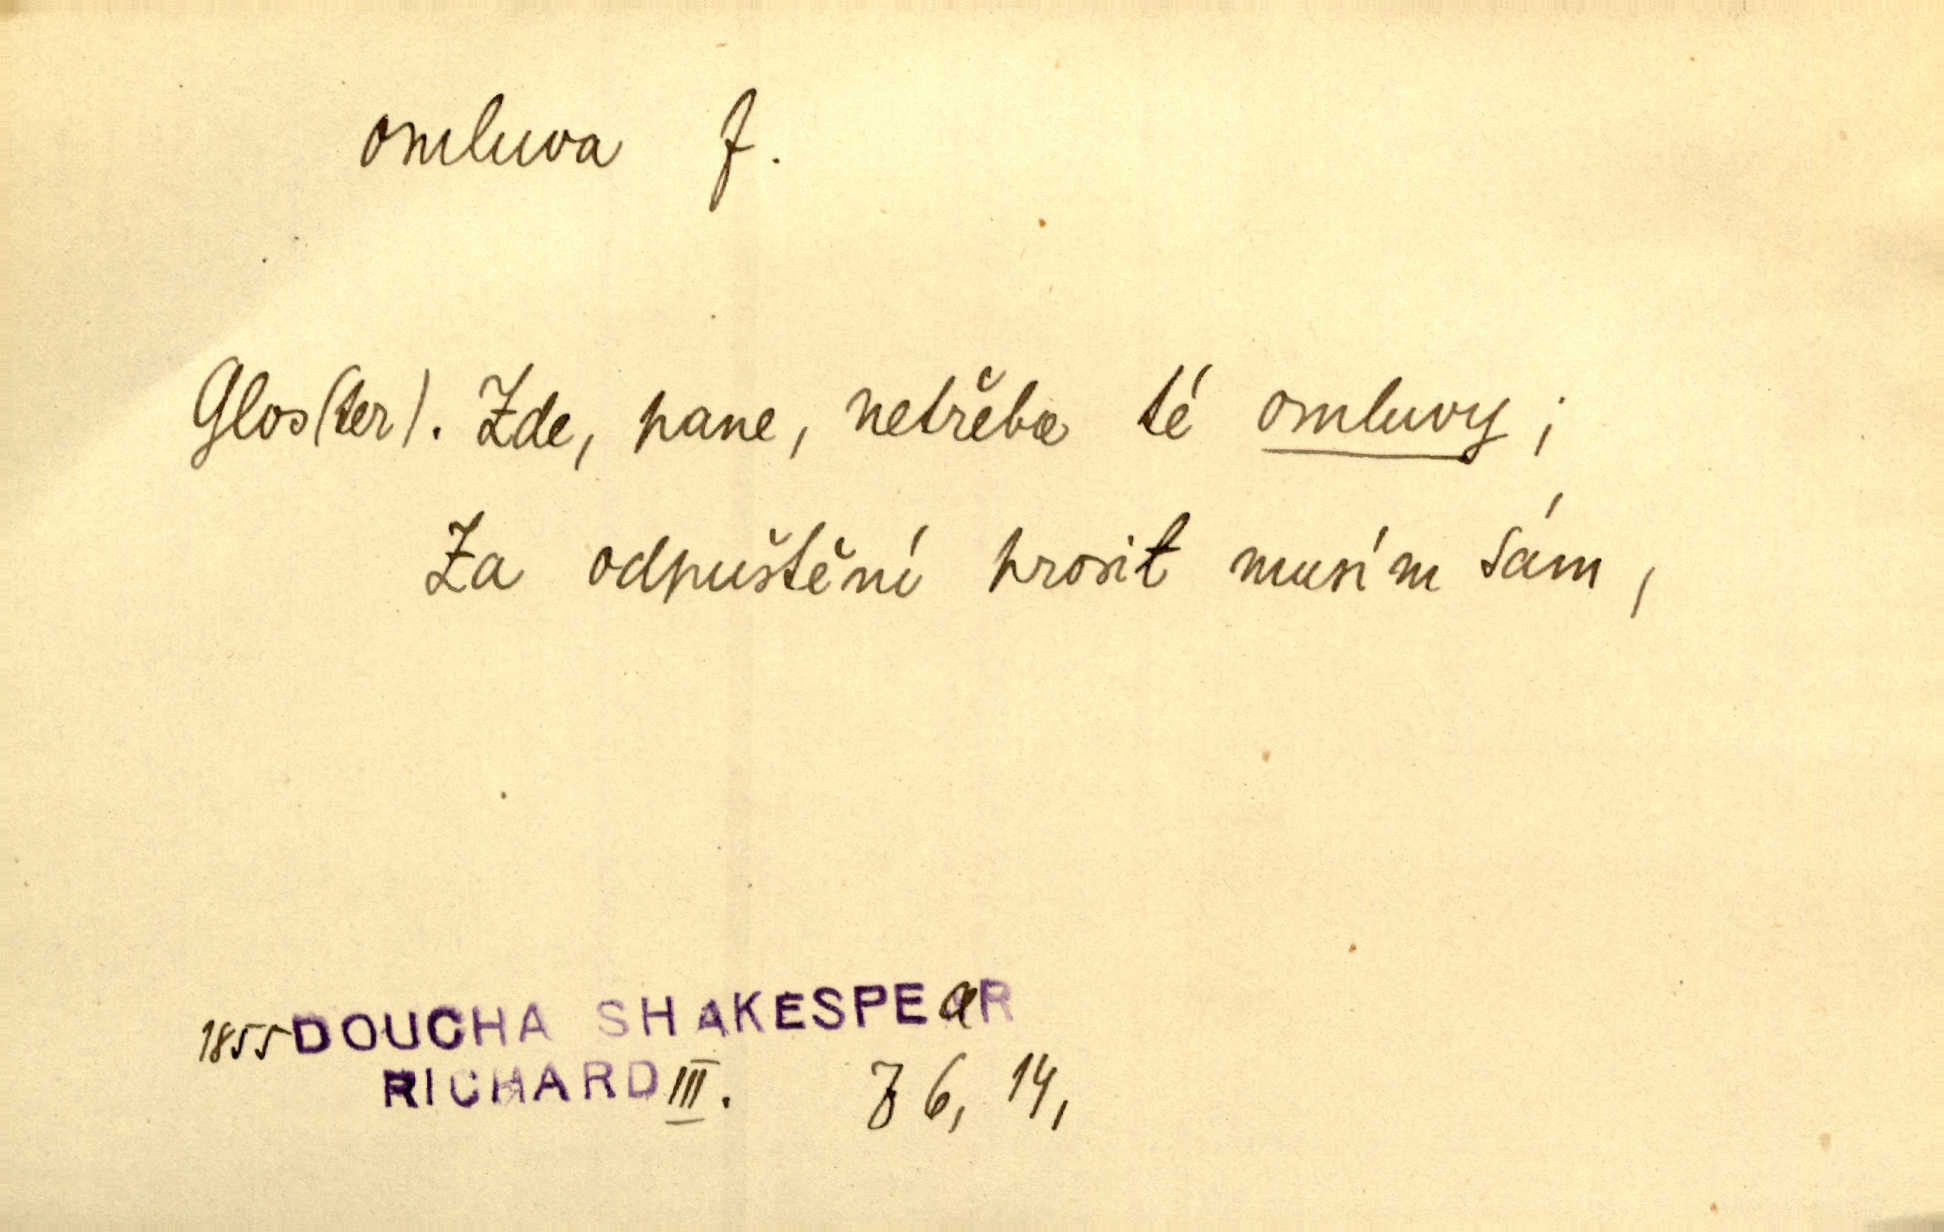 omluva f.
Glos(ter). Zde, pane, netřeba té omluvy;
Za odpuštění prosit musím sám,
1855 DOUCHA SHAKESPEaR
RICHARD III. 76, 14,